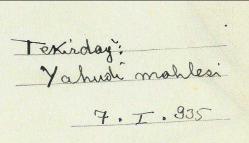 Tekirdağ:
Yahudî mahlesi
7. I. 935